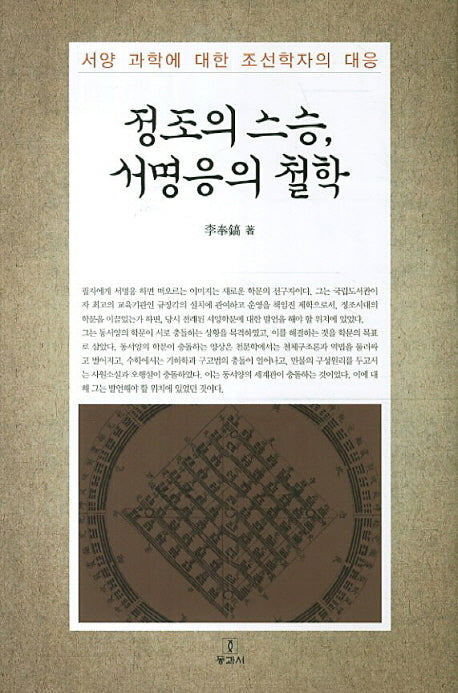 서양 과학에 대한 조선학자의 대응
정조의 스승,
서명응의 철학
李奉鎬 著
필자에게 서명응 하면 떠오르는 이미지는 새로운 학문의 선구자이다. 그는 국립도서관이
자 최고의 교육기관인 규장각의 설치에 관여하고 운영을 책임진 제학으로서, 정조시대의
학문을 이끌었는가 하면, 당시 전래된 서양학문에 대한 발언을 해야 할 위치에 있었다.
그는 동서양의 학문이 서로 충돌하는 상황을 목격하였고, 이를 해결하는 것을 학문의 목표
로 삼았다. 동서양의 학문이 충돌하는 양상은 천문학에서는 천체구조론과 역법을 둘러싸
고 벌어지고, 수학에서는 기하학과 구고법의 충돌이 일어나고, 만물의 구성원리를 두고서
는 사원소설과 오행설이 충돌하였다. 이는 동서양의 세계관이 충돌하는 것이었다. 이에 대
해 그는 발언해야 할 위치에 있었던 것이다.
동과서